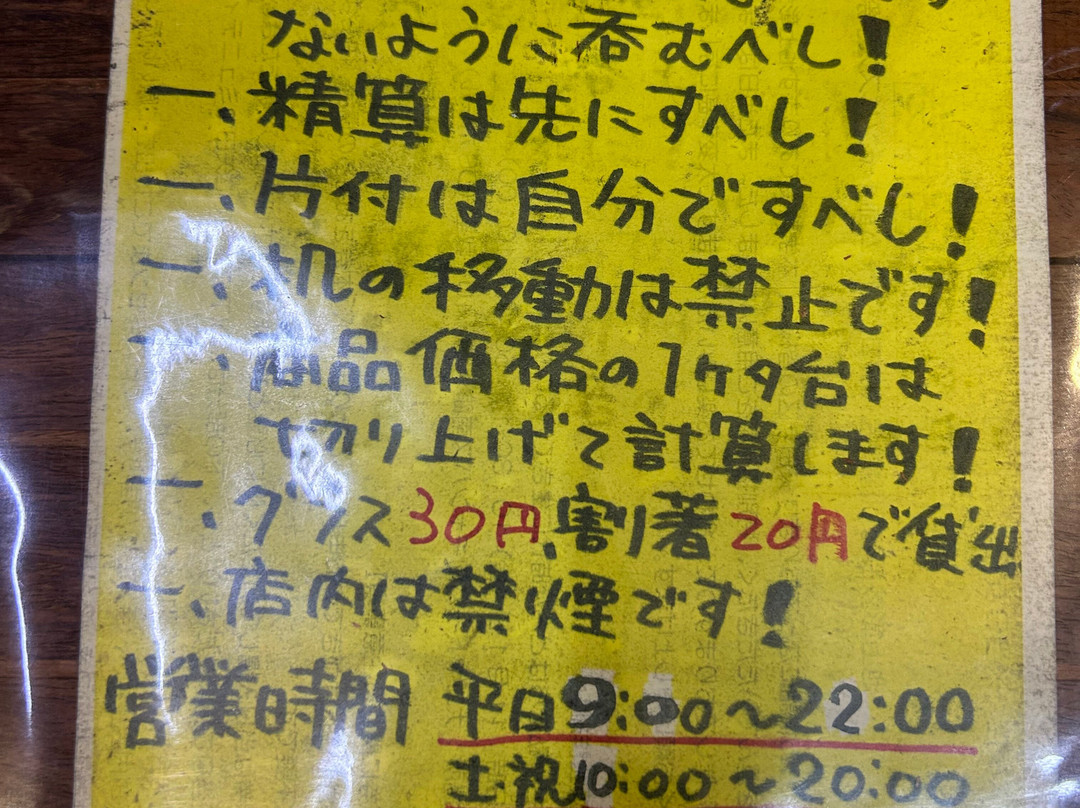 ないように呑むべし!
一、精算は先にすべし!
一、片付は自分ですべし!
一、机の移動は禁止です!
一、商品価格の1ケタ台は
切り上げて計算します!
一、グラス30円、割箸20円で貸出
一、店内は禁煙です!
営業時間 平日9:00〜22:00
土・祝10:00〜20:00